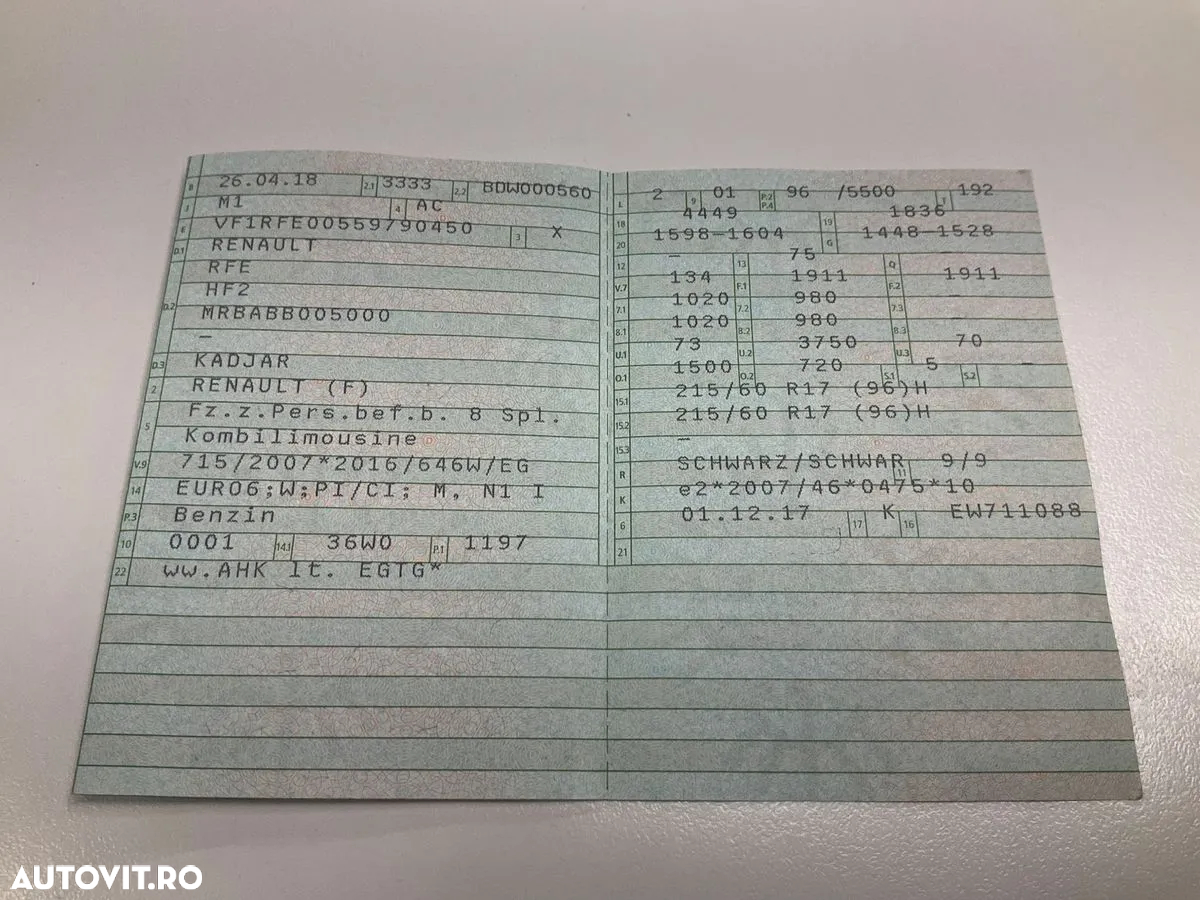 B 26.04.18 2.1 3333 2.2 BDW000560
J M1 4 AC
E VF1RFE00559790450 3 X
D.1 RENAULT
RFE
D.2 HF2
MRBABB005000
—
D.3 KADJAR
2 RENAULT (F)
5 Fz.z.Pers.bef.b. 8 Spl.
Kombilimousine
V.9 715/2007*2016/646W/EG
14 EURO6;W;PI/CI; M, N1 I
P.3 Benzin
10 0001 14.1 36W0 P.1 1197
22 ww.AHK lt. EGTG*
L 2 9 01 P.2 P.4 96 /5500 T 192
18 4449 19 1836
20 1598-1604 G 1448-1528
12 — 13 75 Q
V.7 134 F.1 1911 F.2 1911
7.1 1020 7.2 980 7.3 —
8.1 1020 8.2 980 8.3 —
U.1 73 U.2 3750 U.3 70
O.1 1500 O.2 720 S.1 5 S.2 —
15.1 215/60 R17 (96)H
15.2 215/60 R17 (96)H
15.3 —
R SCHWARZ/SCHWAR 11 9/9
K e2*2007/46*0475*10
6 01.12.17 17 K 16 EW711088
21
AUTOVIT.RO